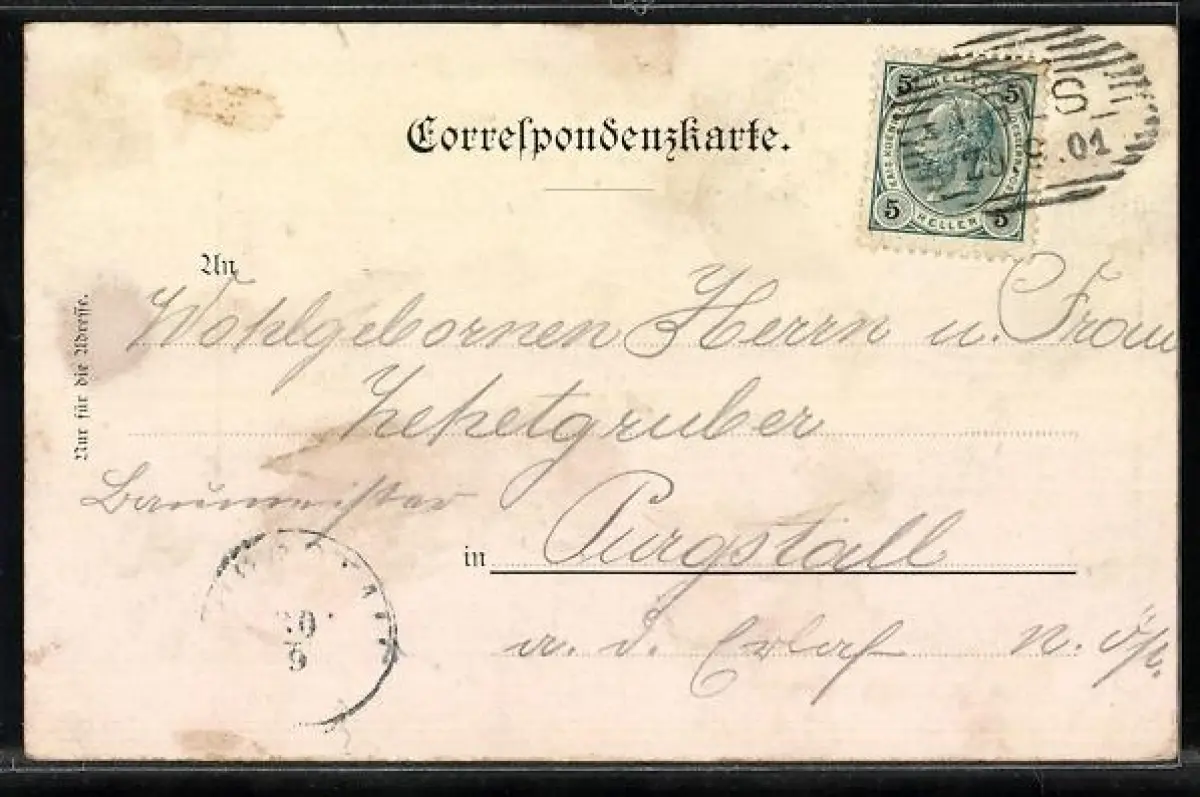 Correspondenzkarte.
5 HELLER 5
5 HELLER 5
S
01
An
Nur für die Adresse.
Wohlgebornen Herrn u. Frau
Zehetgruber
Baumeister
in Purgstall
a. d. Erlaf N. Öst.
20
9